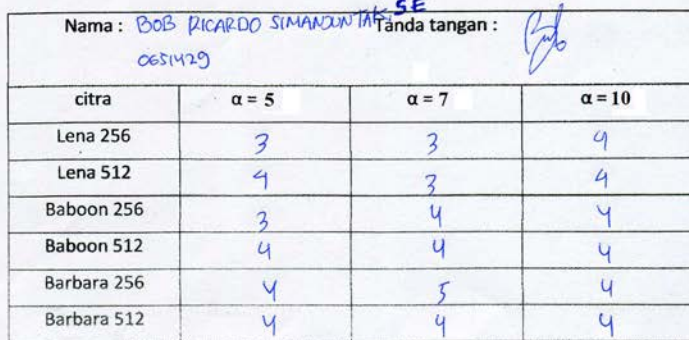 Nama : BOB RICARDO SIMANJUNTAK, SE Tanda tangan :
0651429
citra α = 5 α = 7 α = 10
Lena 256 3 3 4
Lena 512 4 3 4
Baboon 256 3 4 4
Baboon 512 4 4 4
Barbara 256 4 5 4
Barbara 512 4 4 4